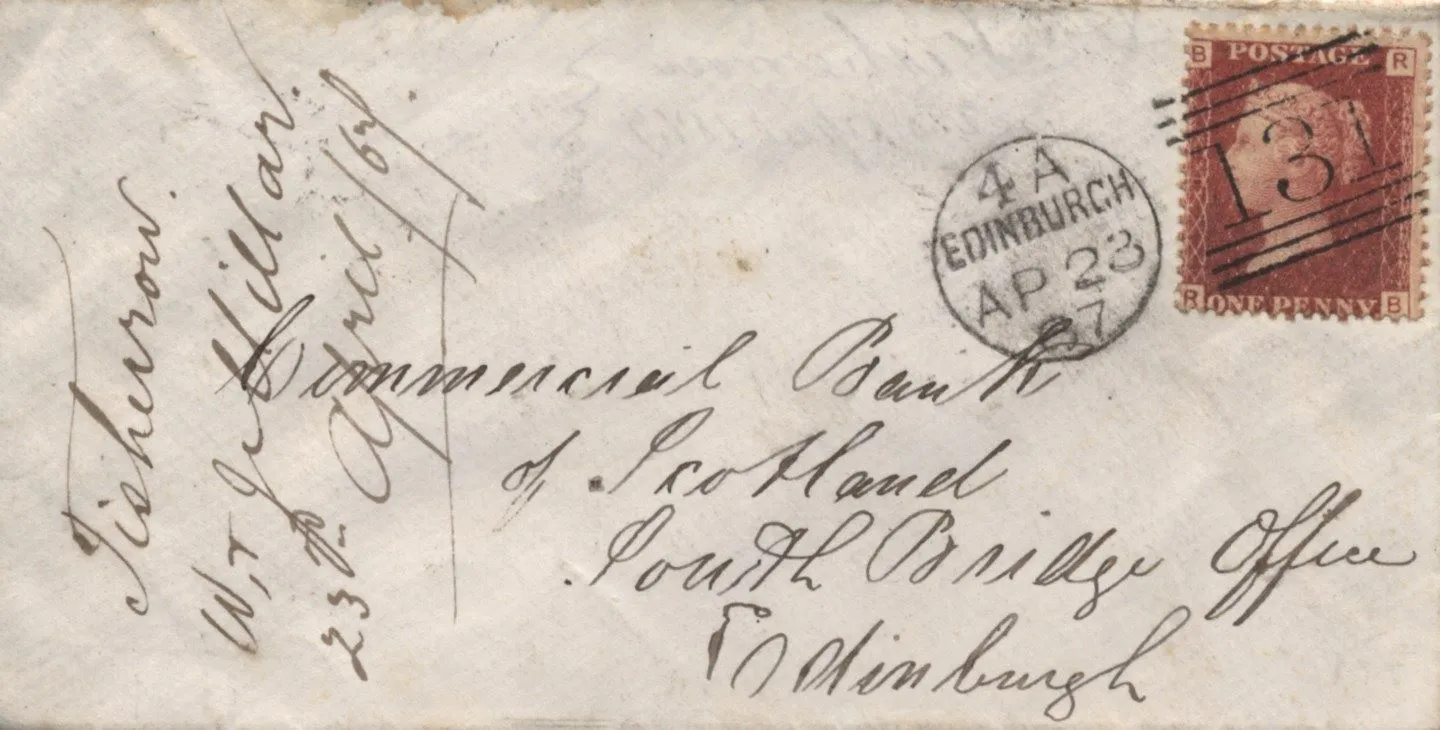 B POSTAGE R
131
R ONE PENNY B
4 A
EDINBURGH
AP 23
67
Commercial Bank
of Scotland
South Bridge Office
Edinburgh
Fisherrow.
W & J Millar.
23 April /67